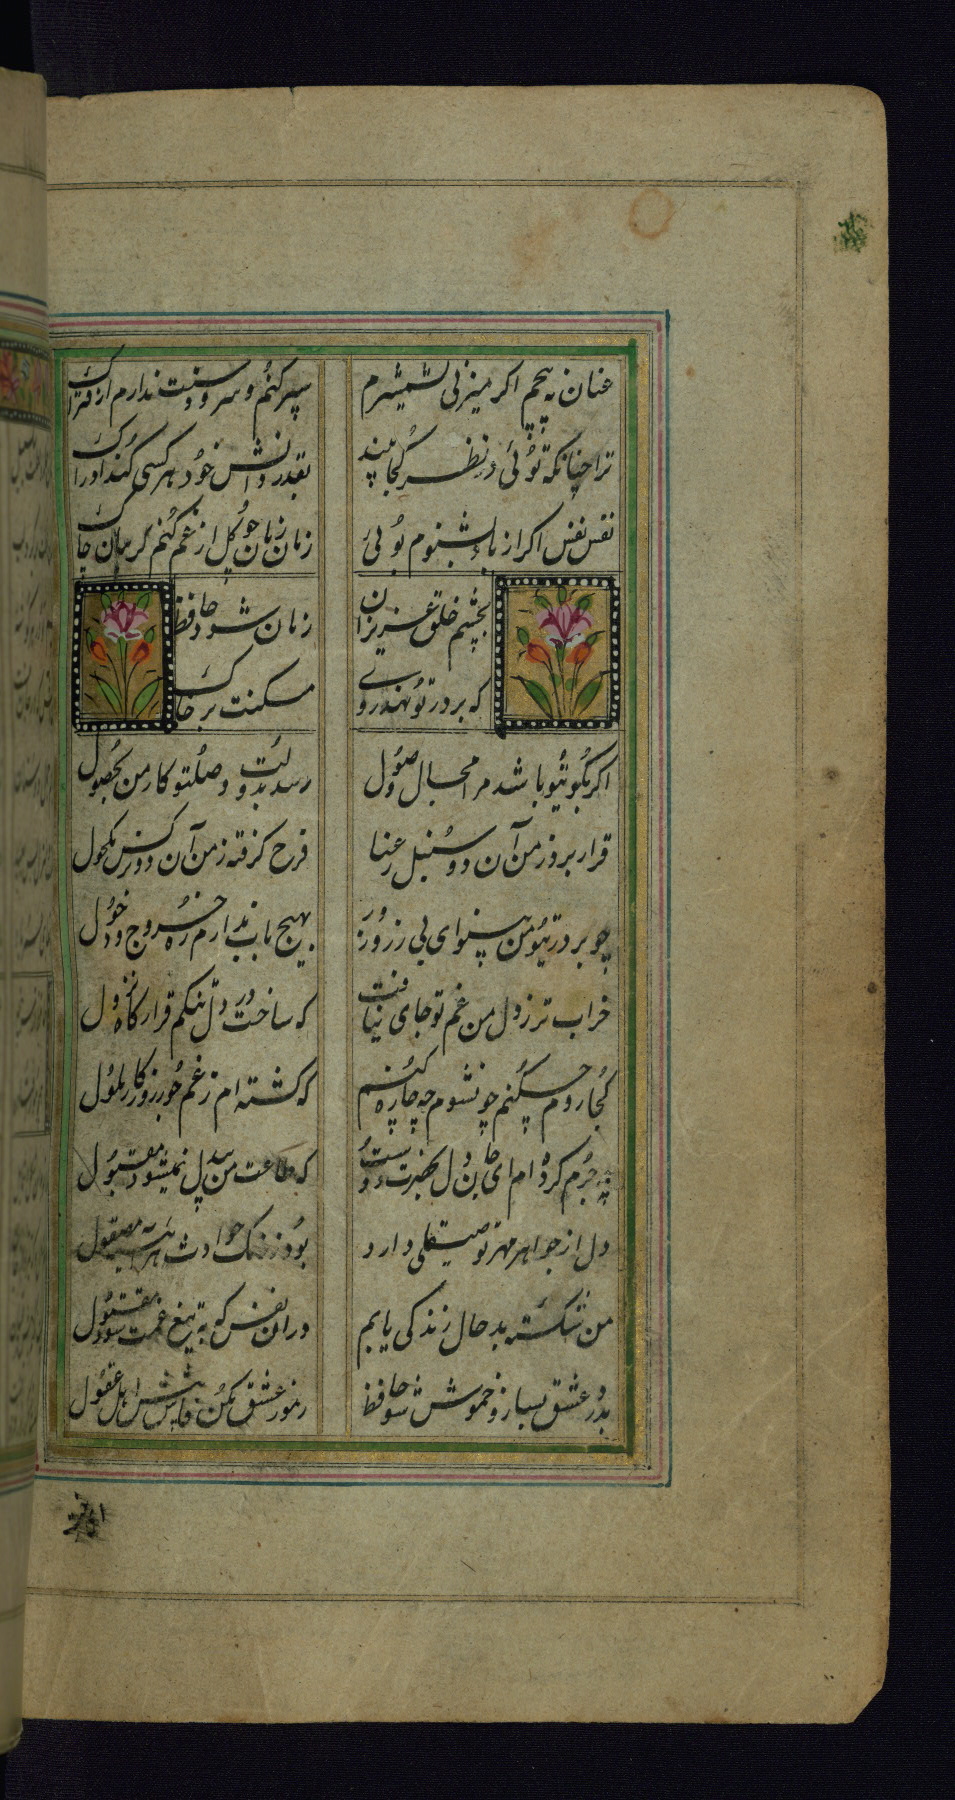 عنان نه پیچم اکر میزنی بشمشیرم سپر کنم سر و دستت ندارم از فتراک
ترا چنانکه توئی در نظر کجا بیند بقدر دانش خود هر کسی کند ادراک
نفس نفس اکر از باد بشنوم بوئی زمان زمان چو کل از غم کنم کریبان چاک
بچشم خلق عزیزان زمان شود حافظ
که بر در تو نهد روی مسکنت بر خاک
اکر بکوی تو باشد مرا مجال وصول رسد بدولت وصل تو کار من بحصول
قرار برد ز من آن دو سنبل رعنا فرح کرفته ز من آن دو نرکس مکحول
چو بر در تو من بینوای بی زر و زور بهیچ باب ندارم ره خروج و دخول
خراب تر ز دل من غم تو جای نیافت که ساخت در دل تنکم قرارکاه نزول
کجا روم چکنم چون شوم چه چاره کنم که کشته ام ز غم جور روزکار ملول
چه جرم کرده ام ای جان و دل بحضرت دوست که طاعت من بیدل نمیشود مقبول
دل از جواهر مهر تو صیقلی دارد بود ز زنک حوادث هر آینه مصقول
من شکسته بدحال زندکی یابم در آن نفس که به تیغ غمت شوم مقتول
بدرد عشق بساز و خموش شو حافظ رموز عشق مکن فاش پیش اهل عقول